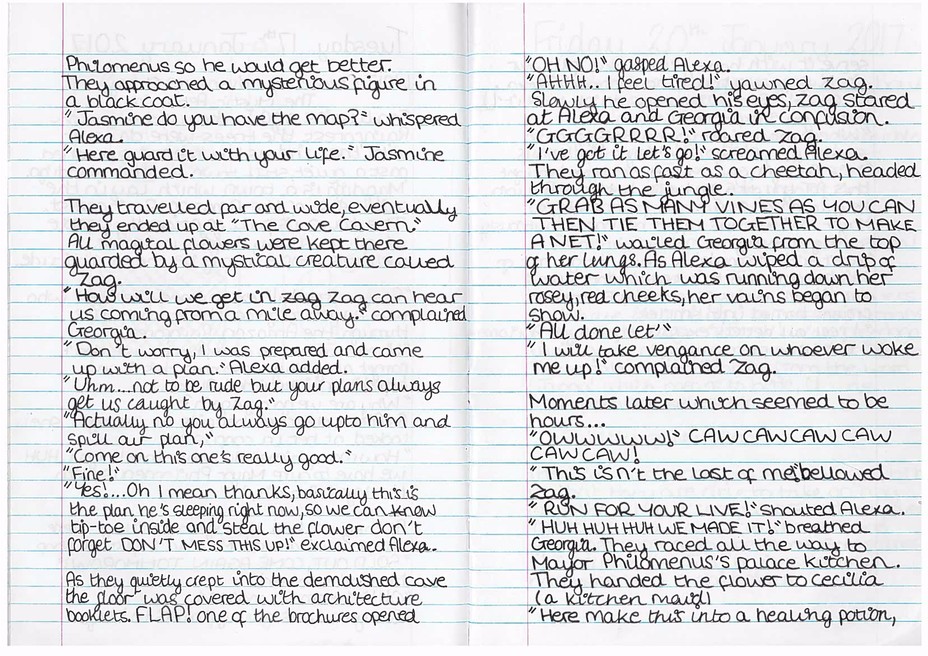 Philomenus so he would get better.
They approached a mysterious figure in
a black coat.
"Jasmine do you have the map?" whispered
Alexa.
"Here guard it with your life." Jasmine
commanded.
They travelled far and wide, eventually
they ended up at "The Cove Cavern."
All magical flowers were kept there
guarded by a mystical creature called
Zag.
"How will we get in zag Zag can hear
us coming from a mile away." complained
Georgia.
"Don't worry, I was prepared and came
up with a plan." Alexa added.
"Uhm...not to be rude but your plans always
get us caught by Zag."
"Actually no you always go upto him and
spill our plan,"
"Come on this one's really good."
"Fine!"
"Yes!...Oh I mean thanks, basically this is
the plan he's sleeping right now, so we can know
tip-toe inside and steal the flower don't
forget DON'T MESS THIS UP!" exclaimed Alexa.
As they quietly crept into the demolished cave
the floor was covered with architecture
booklets. FLAP! one of the brochures opened
"OH NO!" gasped Alexa.
"AHHH.. I feel tired!" yawned Zag.
Slowly he opened his eyes, Zag stared
at Alexa and Georgia in confusion.
"GGGGRRRR!" roared Zag.
"I've got it let's go!" screamed Alexa.
They ran as fast as a cheetah, headed
through the jungle.
"GRAB AS MANY VINES AS YOU CAN
THEN TIE THEM TOGETHER TO MAKE
A NET!" wailed Georgia from the top
of her lungs. As Alexa wiped a drip of
water which was running down her
rosey, red cheeks, her vains began to
show.
"All done let'"
"I will take vengance on whoever woke
me up!" complained Zag.
Moments later which seemed to be
hours...
"OWWWWW!" CAW CAW CAW CAW
CAW CAW!
"This isn't the last of me" bellowed
Zag.
"RUN FOR YOUR LIVE!" shouted Alexa.
"HUH HUH HUH WE MADE IT!" breathed
Georgia. They raced all the way to
Mayor Philomenus's palace kitchen.
They handed the flower to cecilia
(a kitchen maid)
"Here make this into a healing potion,